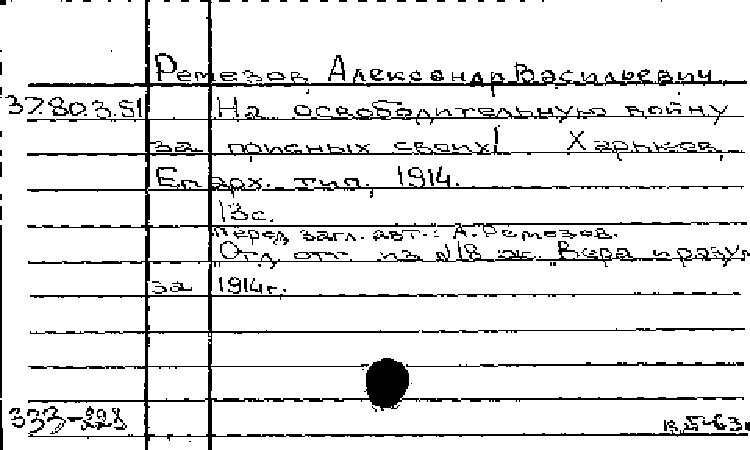 Ремезов, Александр Васильевич.
37.80.3.51 На освободительную войну
за присных своих! Харьков,
Епарх. тип., 1914.
13с.
Перед загл. авт.: А. Ремезов.
Отд. отт. из №18 ж. "Вера и разум
за 1914г.
333-228